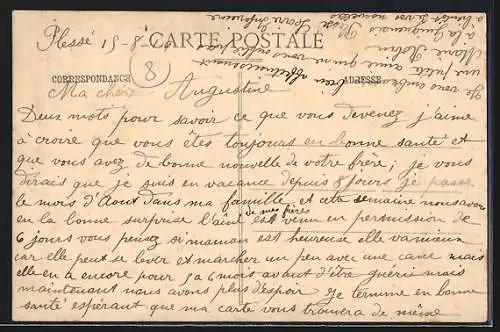 Plessé 15-8-16
CARTE POSTALE
8
CORRESPONDANCE
ADRESSE
Ma chère Augustine
Deux mots pour savoir ce que vous devenez j'aime
à croire que vous êtes toujours en bonne santé et
que vous avez de bonne nouvelle de votre frère; je vous
dirais que je suis en vacance depuis 8 jours je passe
le mois d'Aout dans ma famille et cette semaine nous avons
eu la bonne surprise l'aîné de mes frères est venu en permission de
6 jours vous pensez si maman est heureuse elle va mieux
car elle peut se lever et marcher un peu avec une canne mais
elle en a encore pour 5 a 6 mois avant d'être guérie mais
maintenant nous avons plus d'espoir je termine en bonne
santé espérant que ma carte vous trouvera de même
Je vous embrasse bien affectueusement
une petite amie qui ne vous oublie pas
Marie
à la
Plessé
Loire Inférieure
à bientôt de vos nouvelles